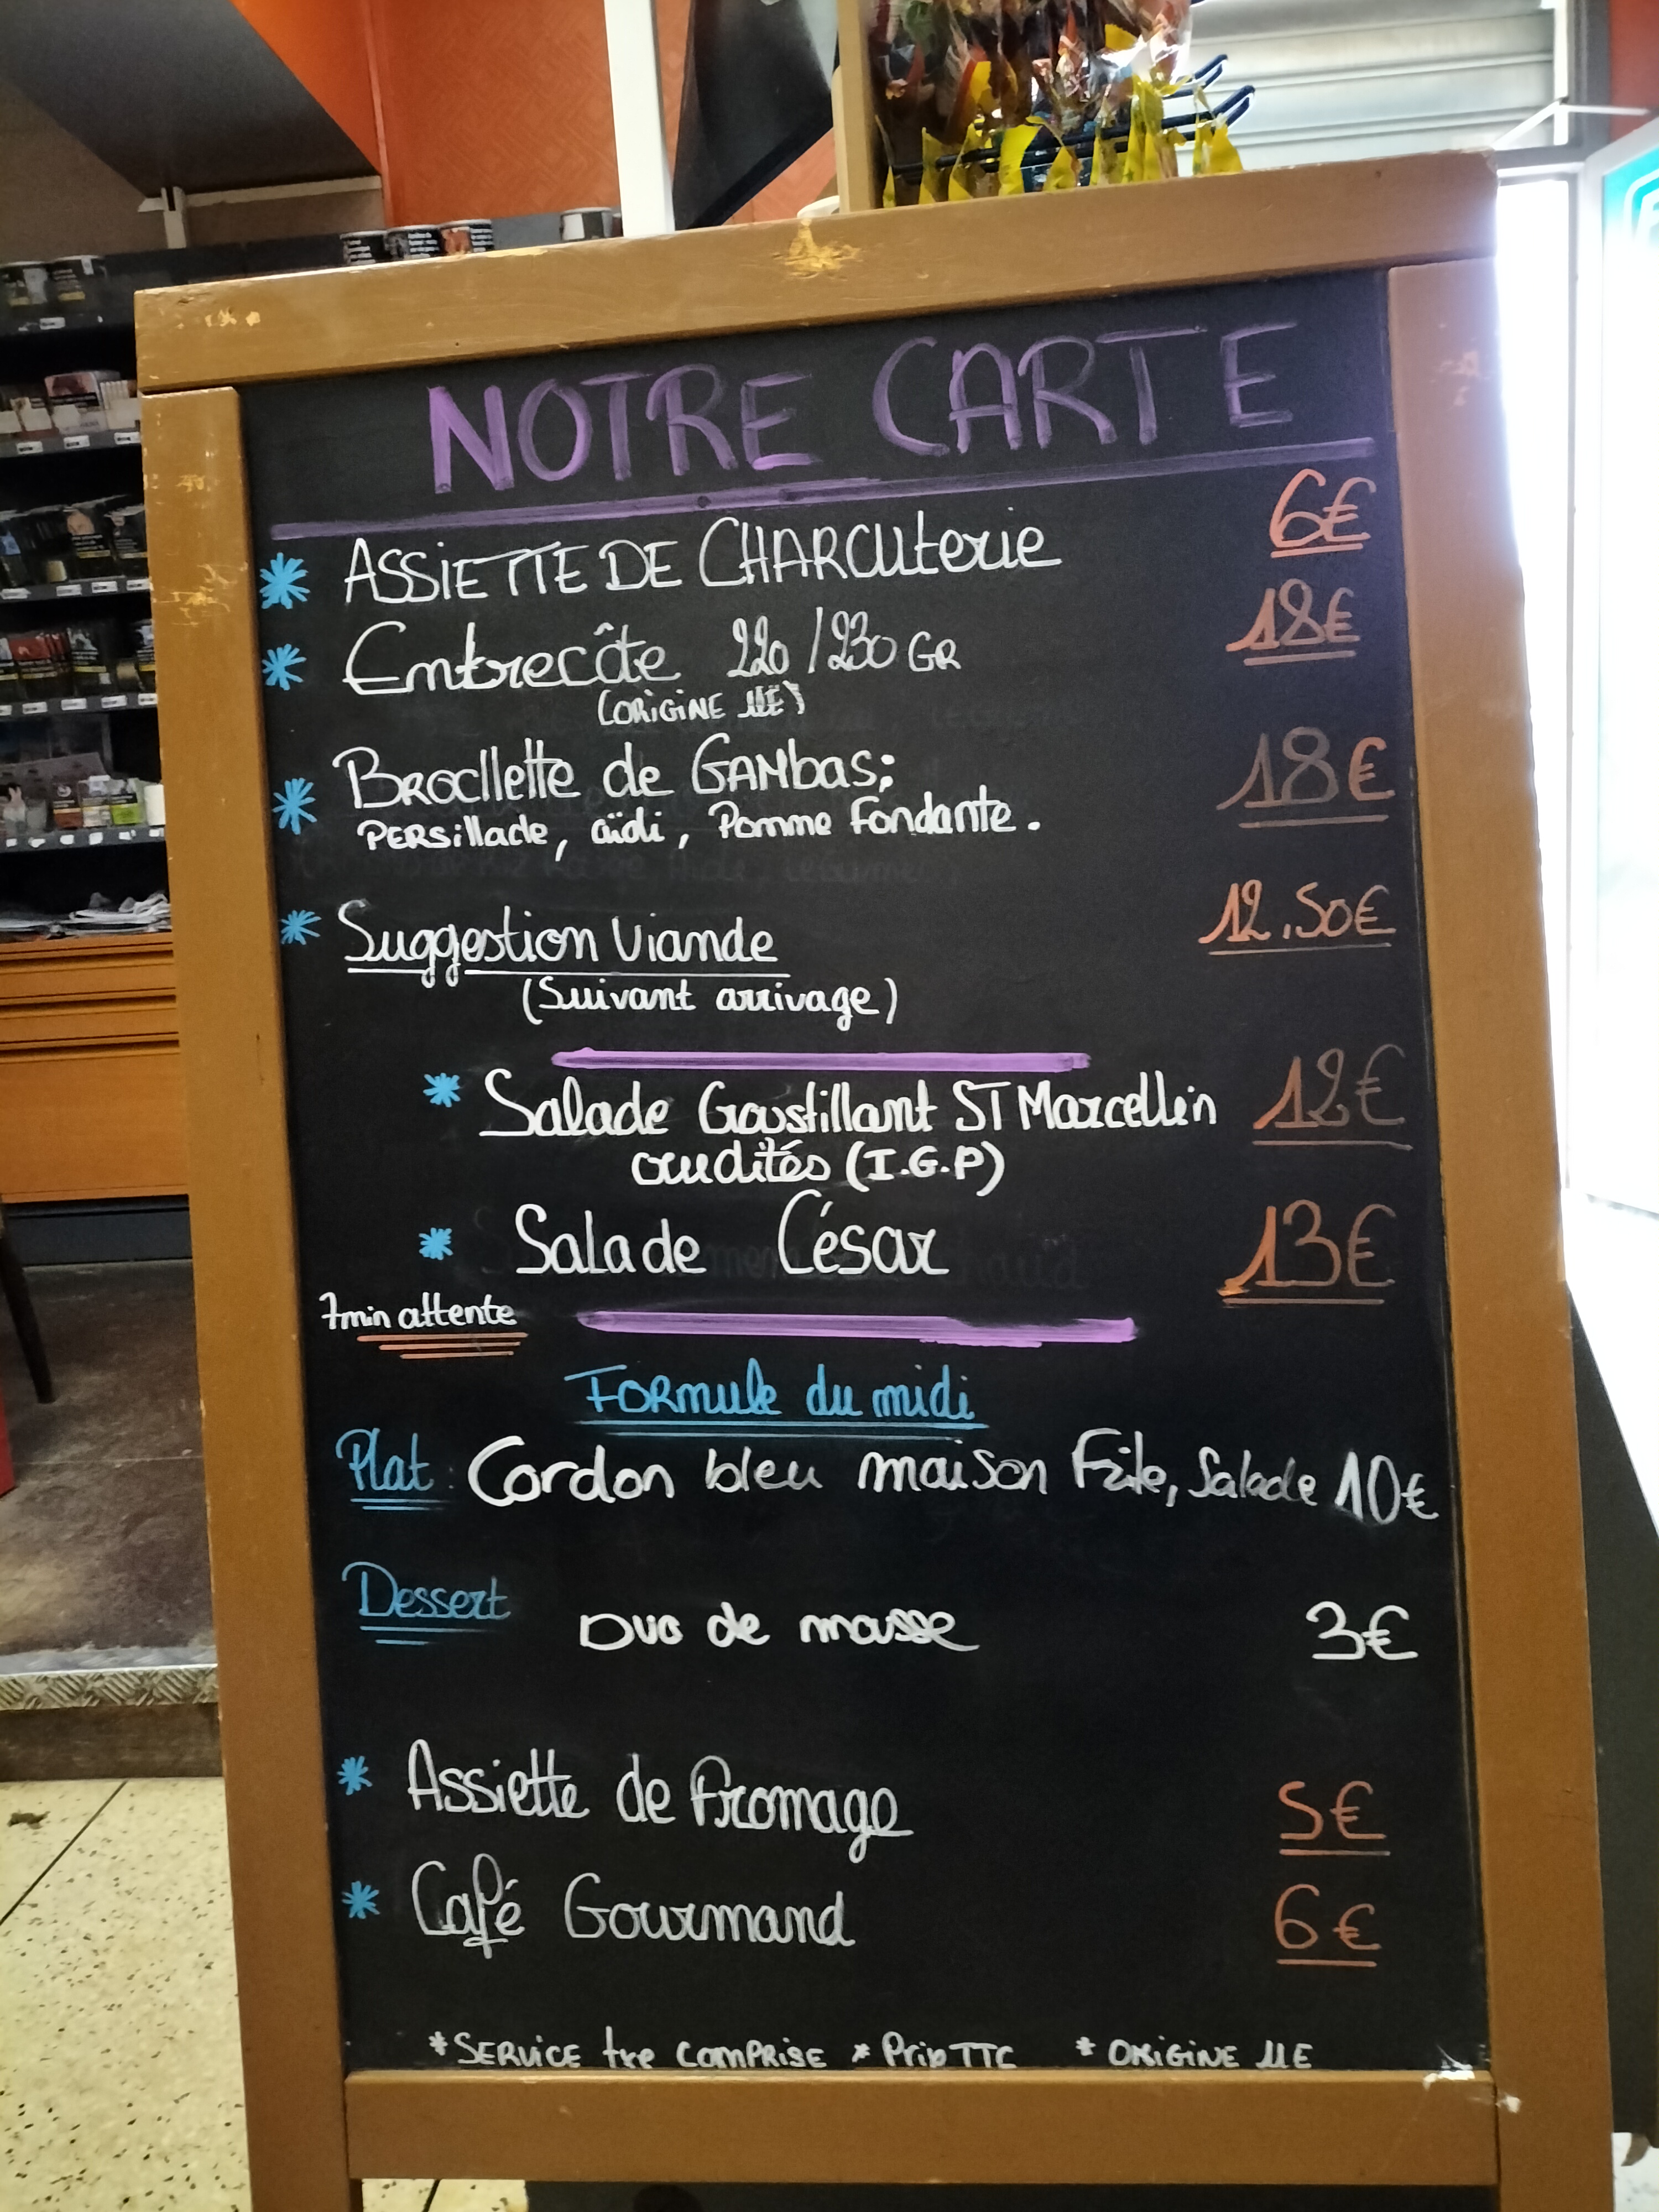 NOTRE CARTE
* ASSIETTE DE CHARCUterie 6€
* Entrecôte 220/230 GR 18€
(ORIGINE UE)
* BROCHette de GAMbas; 18€
PERSillade, aïoli, Pomme Fondante.
* Suggestion Viande 12.50€
(Suivant arrivage)
* Salade Croustillant ST Marcellin 12€
crudités (I.G.P)
* Salade César 13€
7min attente
FORmule du midi
Plat: Cordon bleu maison Frite, Salade 10€
Dessert Duo de mousse 3€
* Assiette de Fromage 5€
* Café Gourmand 6€
*SERVICE txe COMPRISE * Prix TTC * ORIGINE UE